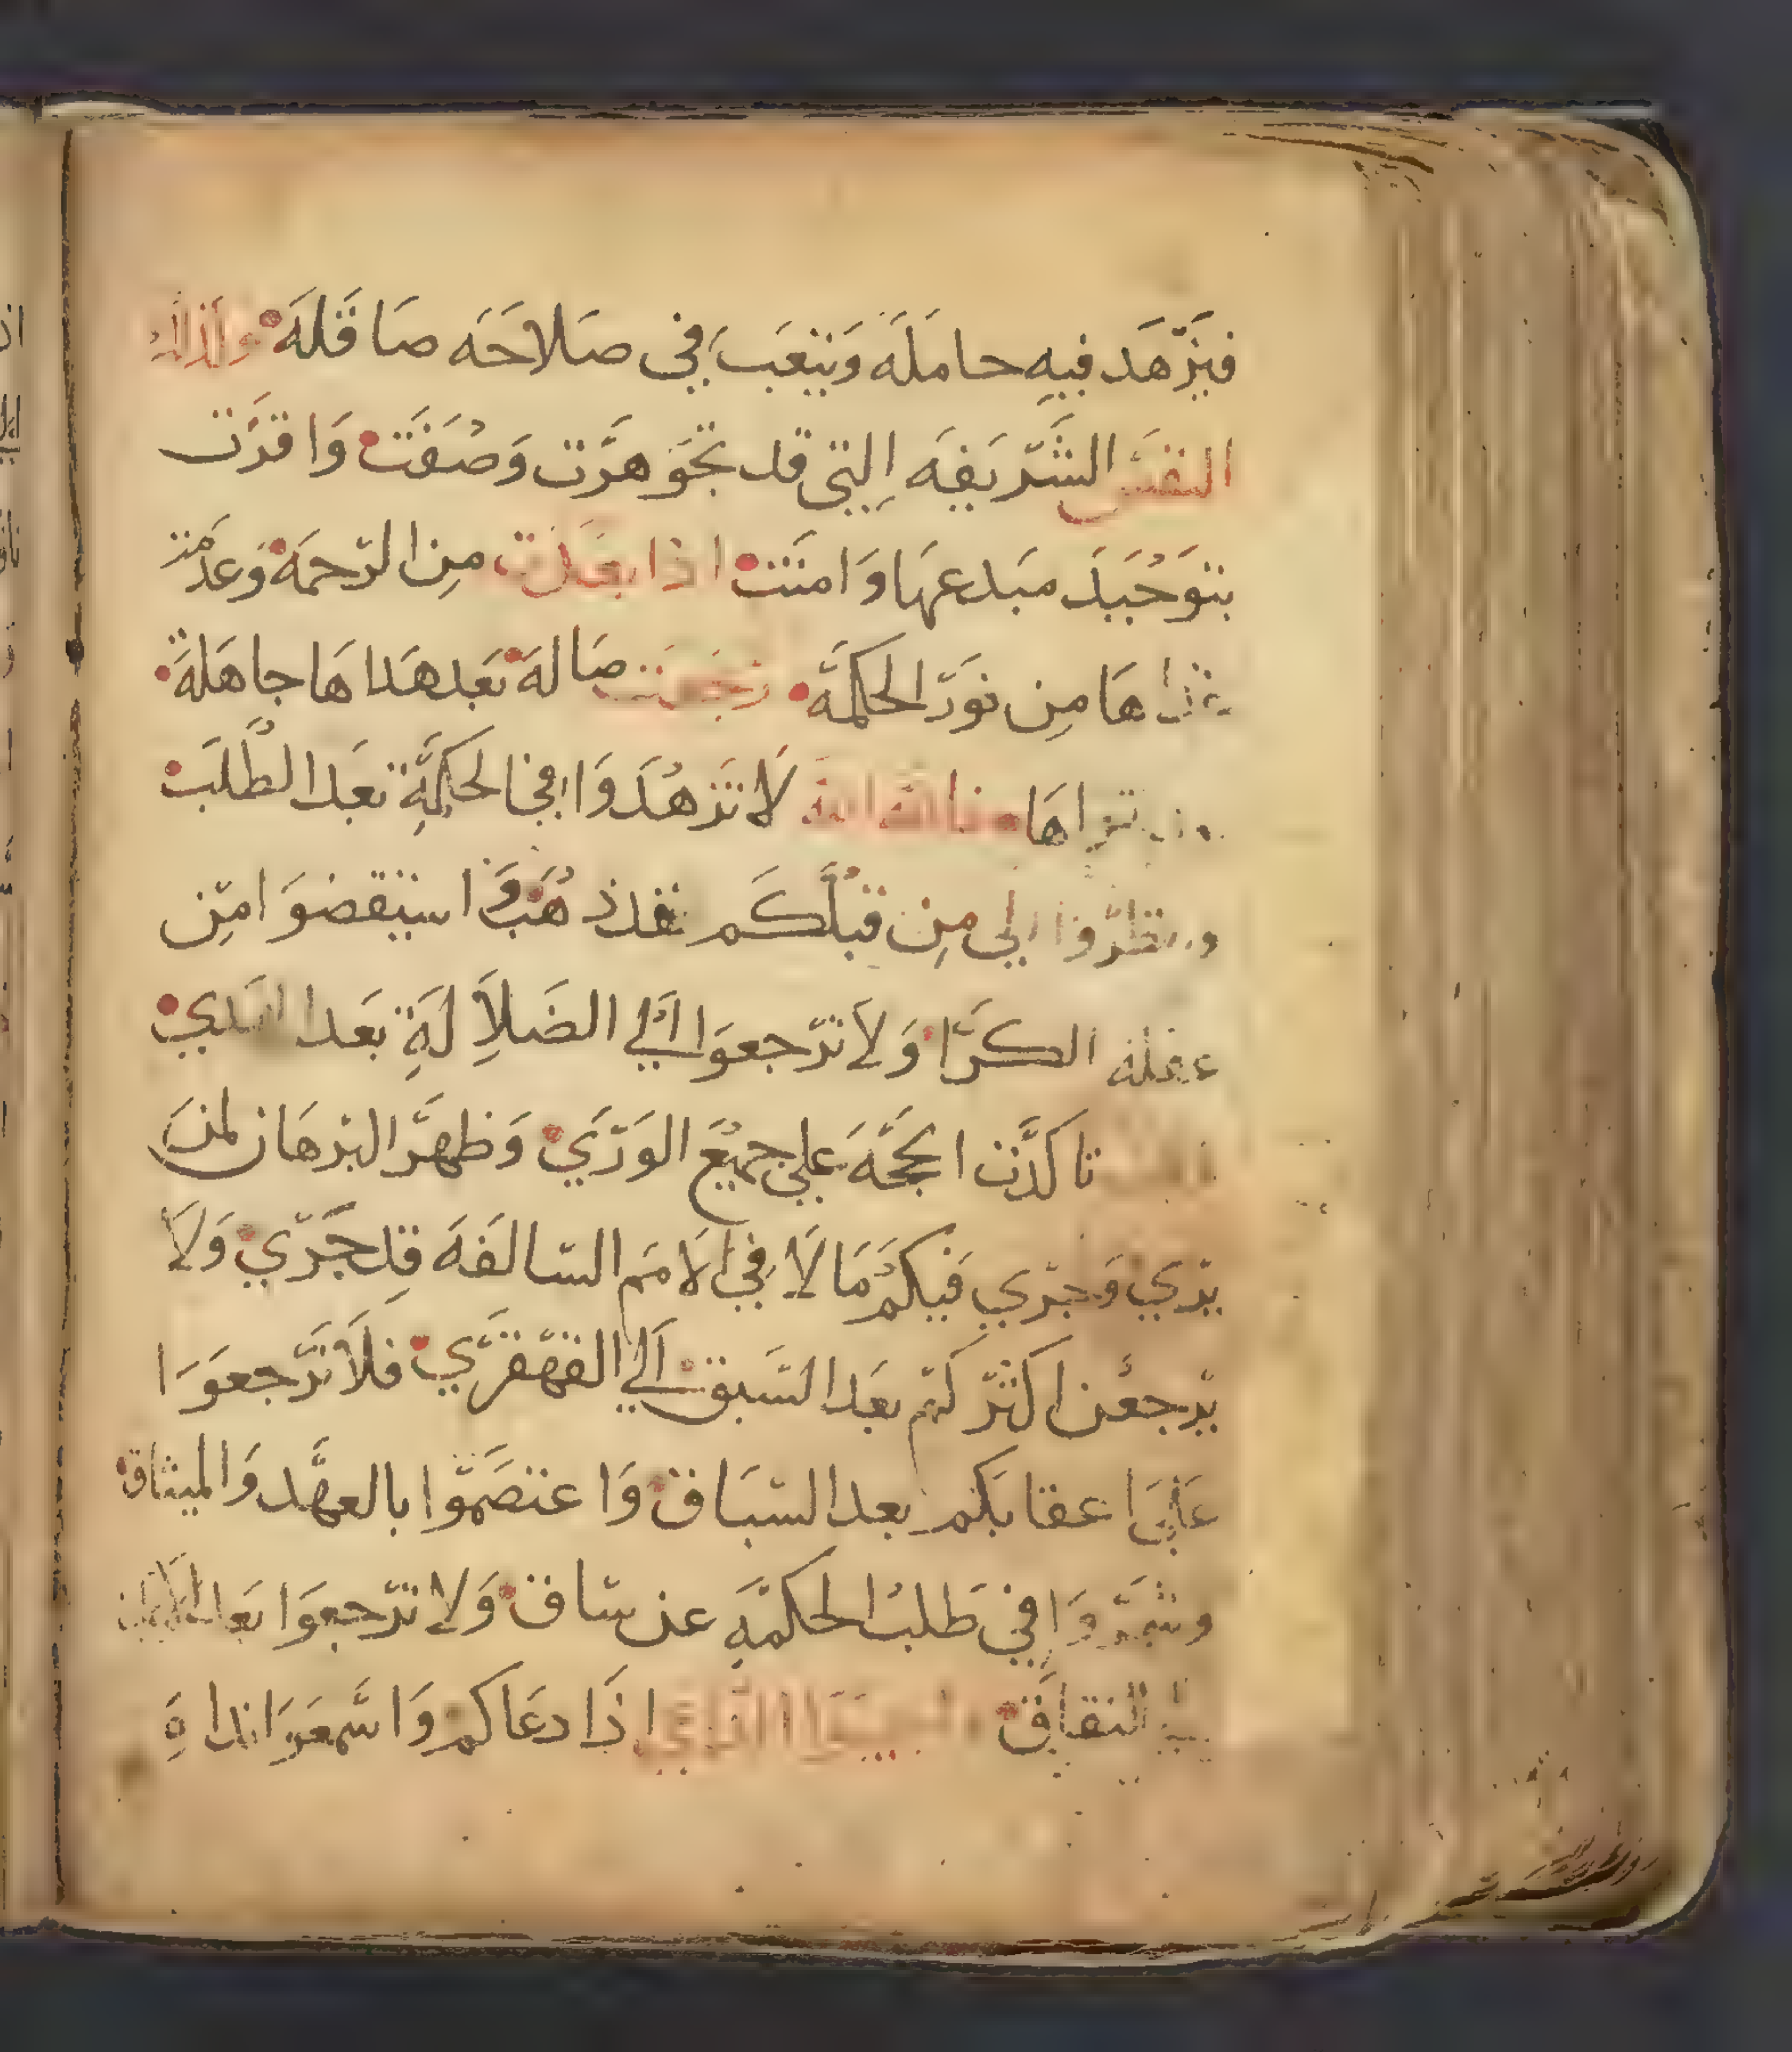 فيَزّهَد فيهِ حاملَه وَيتعَبَ في صَلاحَه صَاقلَه وكذلك
النفسَ الشَّرّيَفِه التِي قد تجَوهَرَّت وَصُفَت وَاقرَّت
بتوَحُيَدَ مبَدعهَا وَامنَت اذا بعَدَت مِن الرّحمَه وَعدمَت
غذاهَا مِن نوَرّ الحكمَّه رجَعَت ضَالهَ بعَد هَداهَا جاهَلهَ
لاَ تَزهُدَوَا في الحكمَّةِ بَعَد الطُّلبَ
وانظرّوا الي مِن قبُلَكَم فقد ذهُبَوَا استيقضوَا مِن
الكرَّا وَلاَ ترّجعوَا اَلي الضَلاَلَةِ بعَد الهَدي
تاكدَّت الحجَّهَ علي جميُعَ الوَرّيَ وَظهرَّ البرّهَان لمَن
يرّي وَجرّي فَيكُمَ مَا لاَ في الاَمَم السّالفَهَ قدِ جَرّي وَلاَ
يرّجعَن اكثرّكم بعَد السَّبق اَلي القهّقرَّي فلاَ ترَّجعوَا
علَيَ اعقابكَم بعد السّبَاق وَاعتصَمّوا بالعهَّد وَالميثاق
وشمَرّوَا في طَلبُ الحكمّهَ عن سّاق وَلا ترّجعوَا بعَد
النفاقَ اذَا دعَاكم وَاسَّمعوَا نداهَ